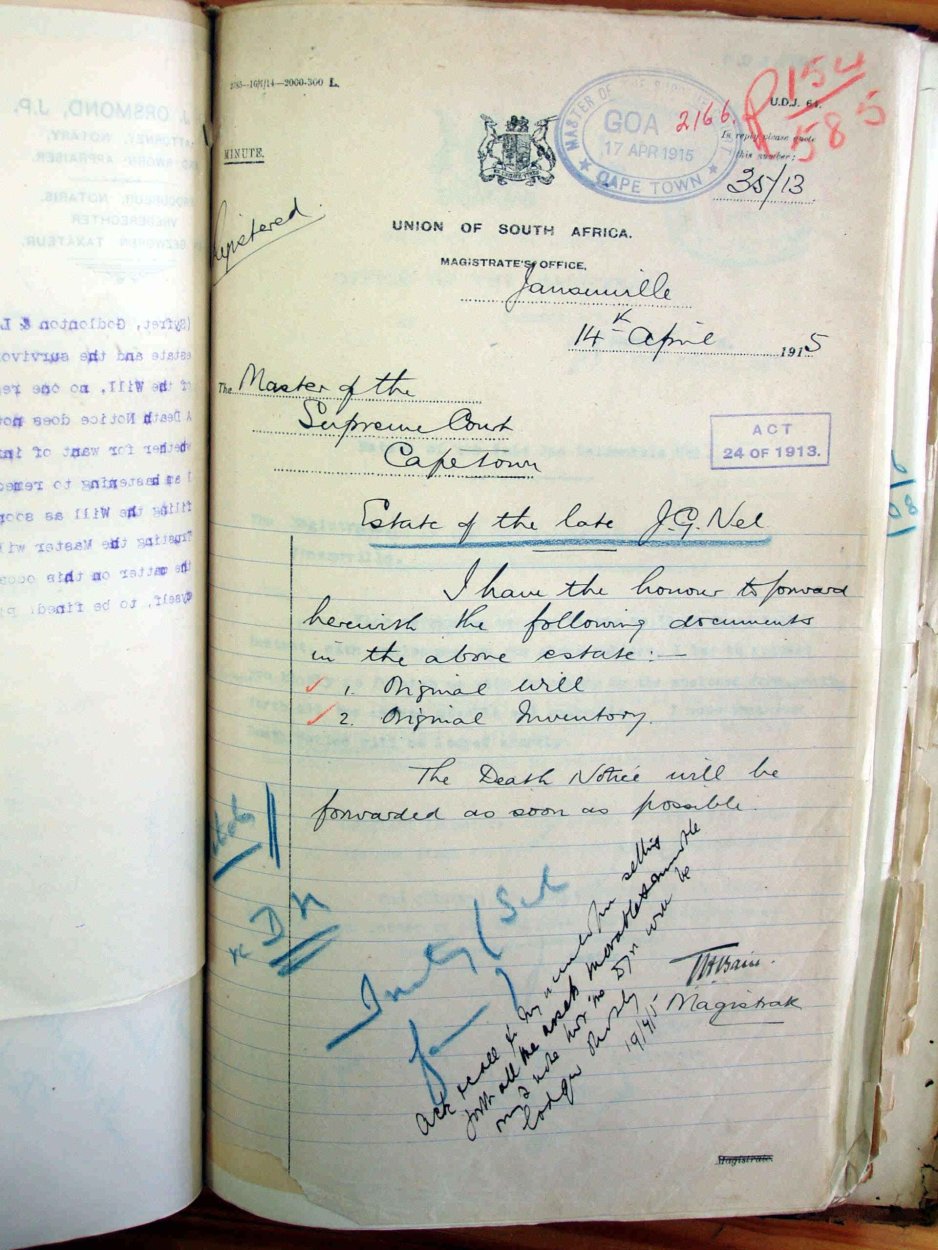 2783—16/1/14—2000-300 L.
MASTER OF THE SUPREME COURT
GOA
17 APR 1915
★ CAPE TOWN ★
2166
U.D.J. 64.
P 154
585
In reply please quote
this number:
35/13
MINUTE.
Registered
UNION OF SOUTH AFRICA.
MAGISTRATE'S OFFICE,
Jansenville
14th April 1915
The Master of the
Supreme Court
Capetown
ACT
24 OF 1913.
Estate of the late J.G. Nel
I have the honour to forward
herewith the following documents
in the above estate:-
1. Original Will
2. Original Inventory.
The Death Notice will be
forwarded as soon as possible.
DN
Magistrate
Ack & call for Inv under setting
forth all the assets movable & immovable
and note that the D/N will be
lodged shortly
19/4/15
Magistrate
J. ORSMOND, J.P.
ATTORNEY, NOTARY,
AND SWORN APPRAISER
PROCUREUR, NOTARIS,
VENDERECHTER
EN BEZWOREN TAXATEUR.
(Syfret, Godlonton & L
estate and the survivo
of the Will, no one re
A Death Notice does not
whether for want of
I am hastening to remed
filing the Will as soon
Trusting the Master wil
the matter on this occa
myself, to be fined,